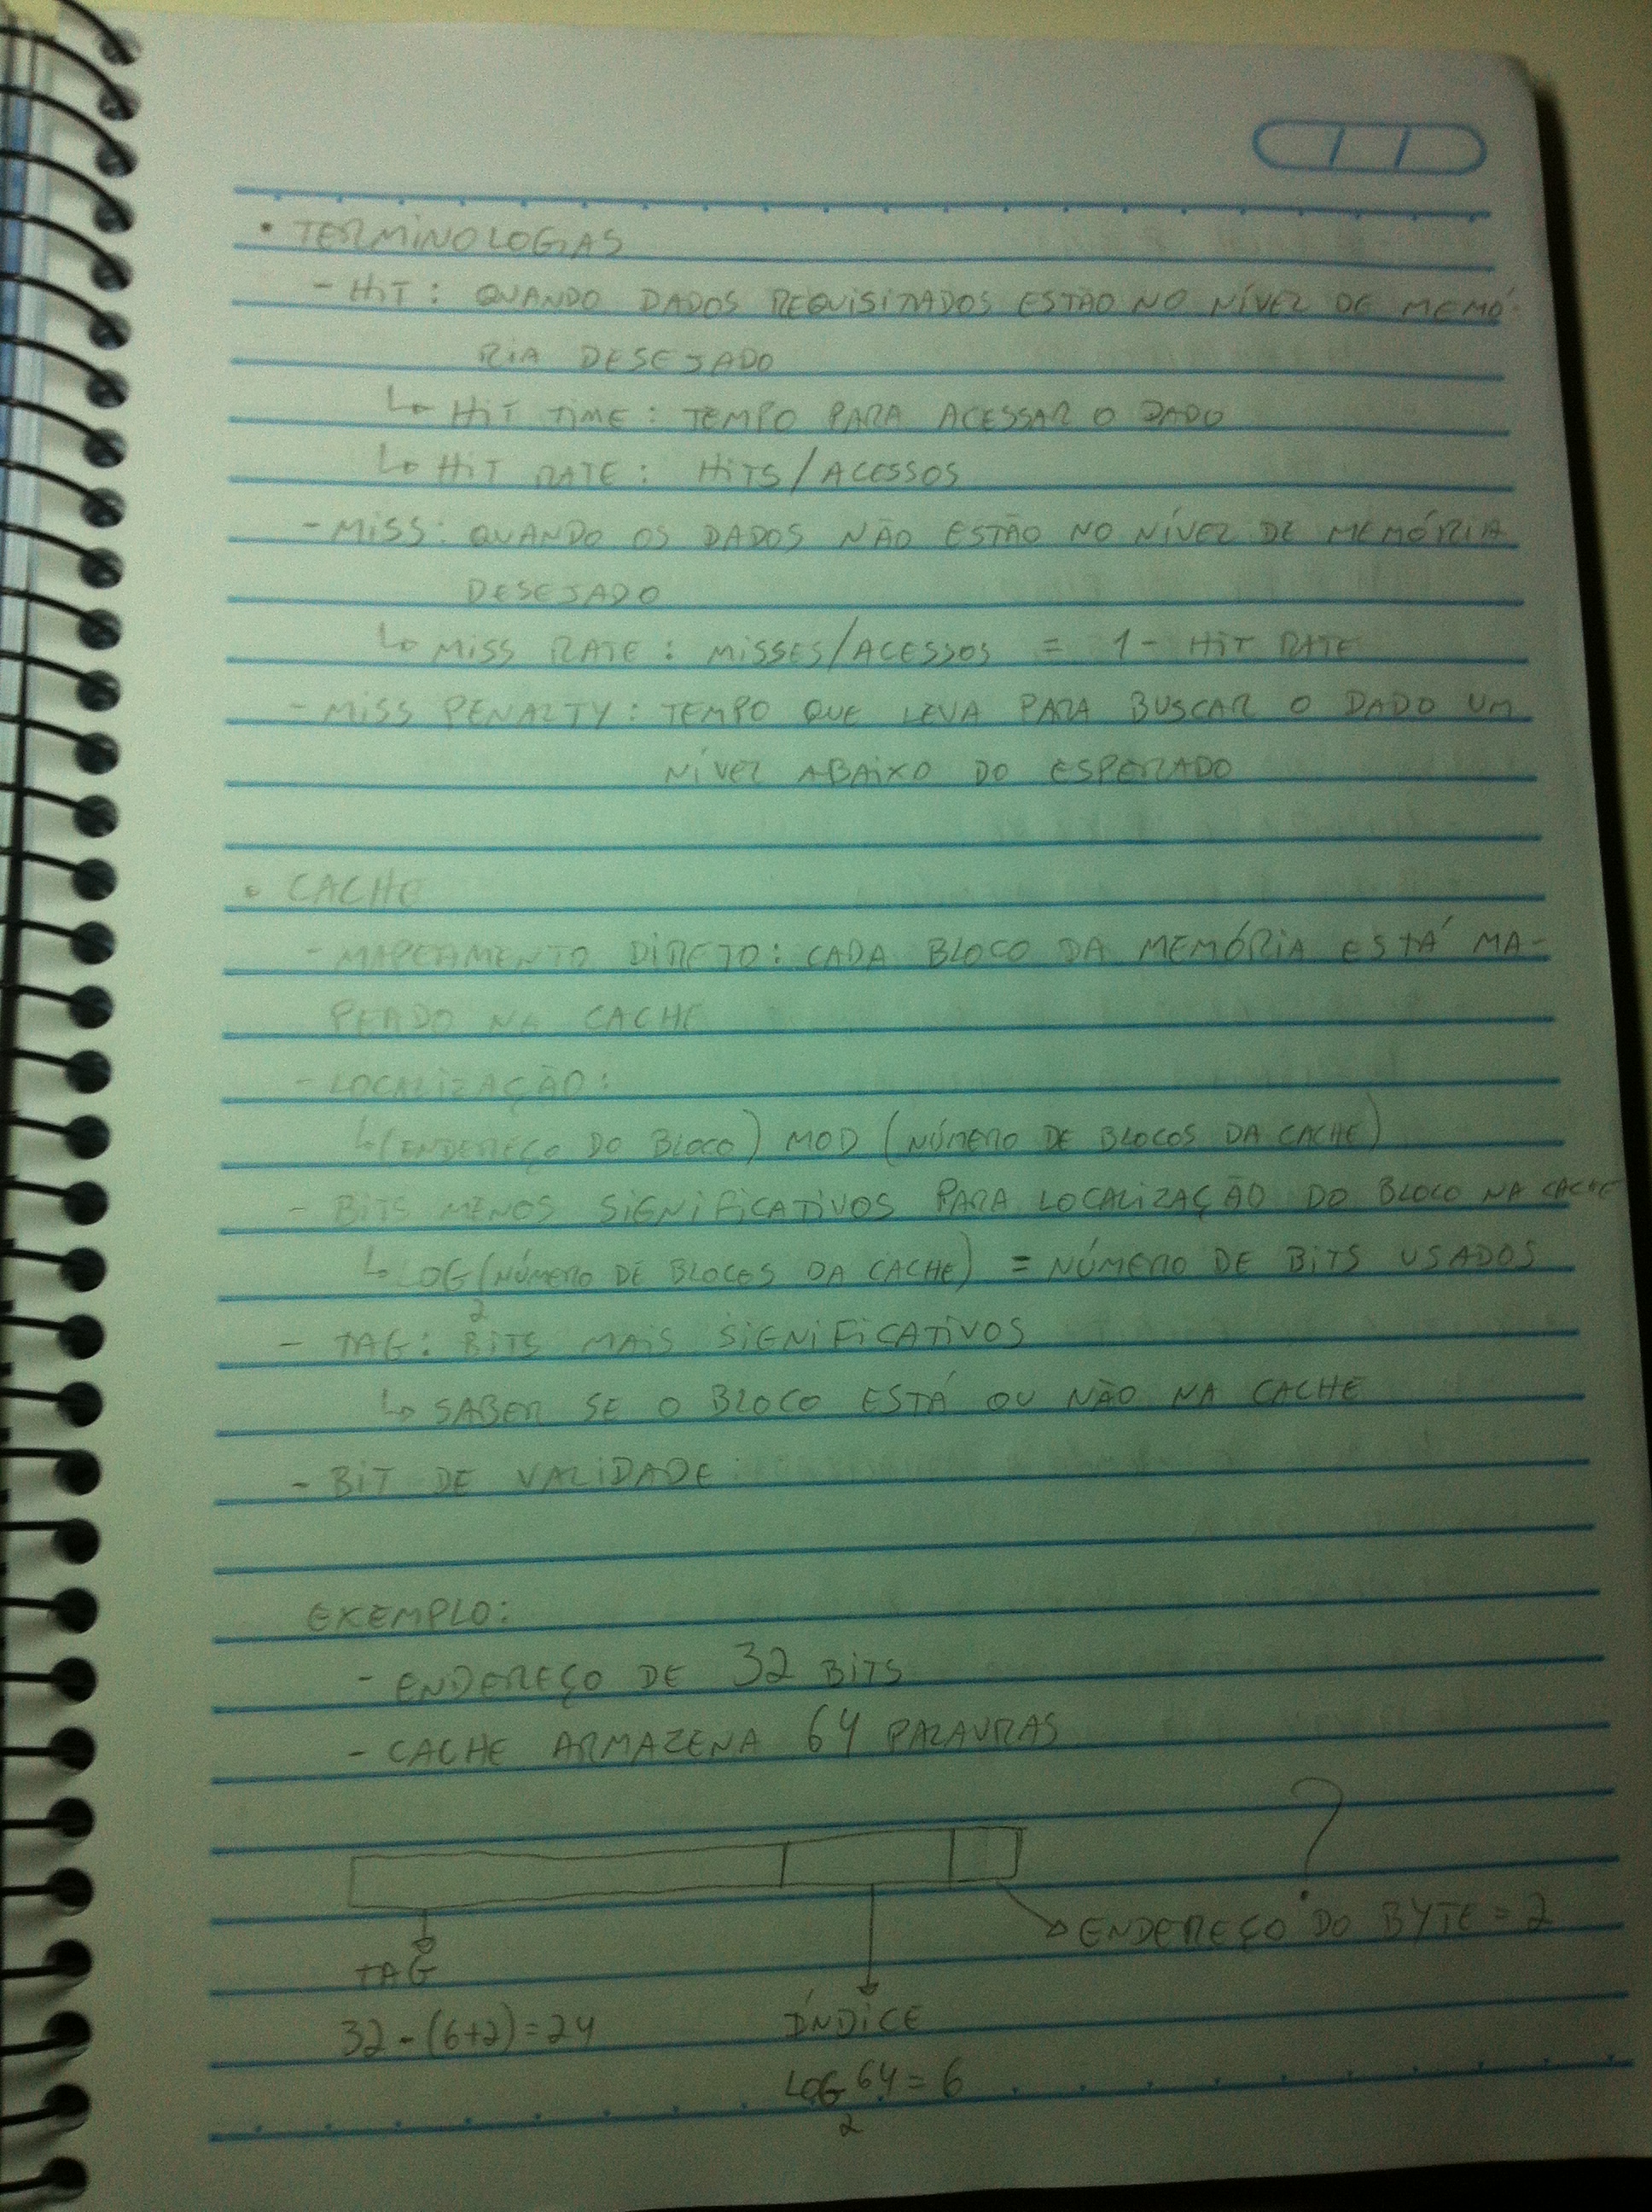 • TERMINOLOGIAS
- HIT: QUANDO DADOS REQUISITADOS ESTÃO NO NÍVEL DE MEMÓ-
RIA DESEJADO
↳ HIT TIME: TEMPO PARA ACESSAR O DADO
↳ HIT RATE: HITS/ACESSOS
- MISS: QUANDO OS DADOS NÃO ESTÃO NO NÍVEL DE MEMÓRIA
DESEJADO
↳ MISS RATE: MISSES/ACESSOS = 1 - HIT RATE
- MISS PENALTY: TEMPO QUE LEVA PARA BUSCAR O DADO UM
NÍVEL ABAIXO DO ESPERADO
• CACHE
- MAPEAMENTO DIRETO: CADA BLOCO DA MEMÓRIA ESTÁ MA-
PEADO NA CACHE
- LOCALIZAÇÃO:
↳ (ENDEREÇO DO BLOCO) MOD (NÚMERO DE BLOCOS DA CACHE)
- BITS MENOS SIGNIFICATIVOS PARA LOCALIZAÇÃO DO BLOCO NA CACHE
↳ LOG₂(NÚMERO DE BLOCOS DA CACHE) = NÚMERO DE BITS USADOS
- TAG: BITS MAIS SIGNIFICATIVOS
↳ SABER SE O BLOCO ESTÁ OU NÃO NA CACHE
- BIT DE VALIDADE
EXEMPLO:
- ENDEREÇO DE 32 BITS
- CACHE ARMAZENA 64 PALAVRAS
?
→ ENDEREÇO DO BYTE = 2
TAG
32 - (6+2) = 24
ÍNDICE
LOG₂ 64 = 6